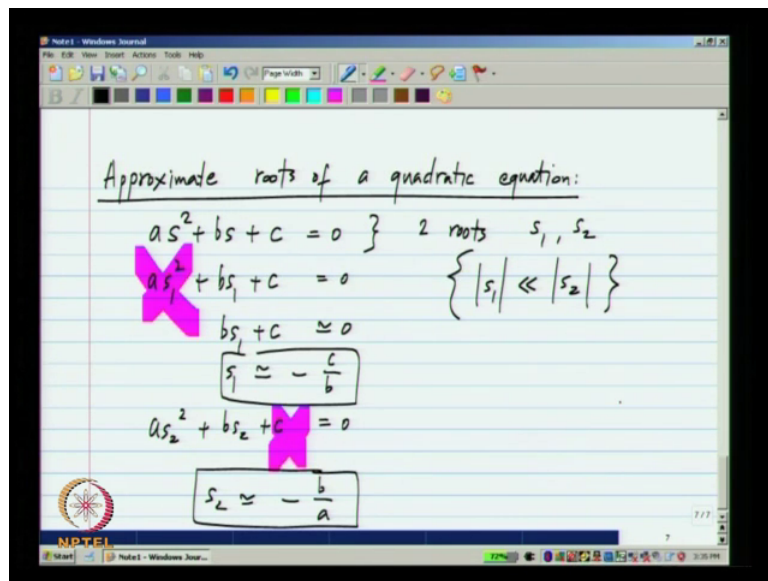 Note1 - Windows Journal
File Edit View Insert Actions Tools Help
Page Width
B I
Approximate roots of a quadratic equation:
as² + bs + c = 0 } 2 roots s₁, s₂
as₁² + bs₁ + c = 0 { |s₁| ≪ |s₂| }
bs₁ + c ≃ 0
s₁ ≃ - c/b
as₂² + bs₂ + c = 0
s₂ ≃ - b/a
NPTEL
7/7
7
Start Note1 - Windows Jour... 72% 3:35 PM